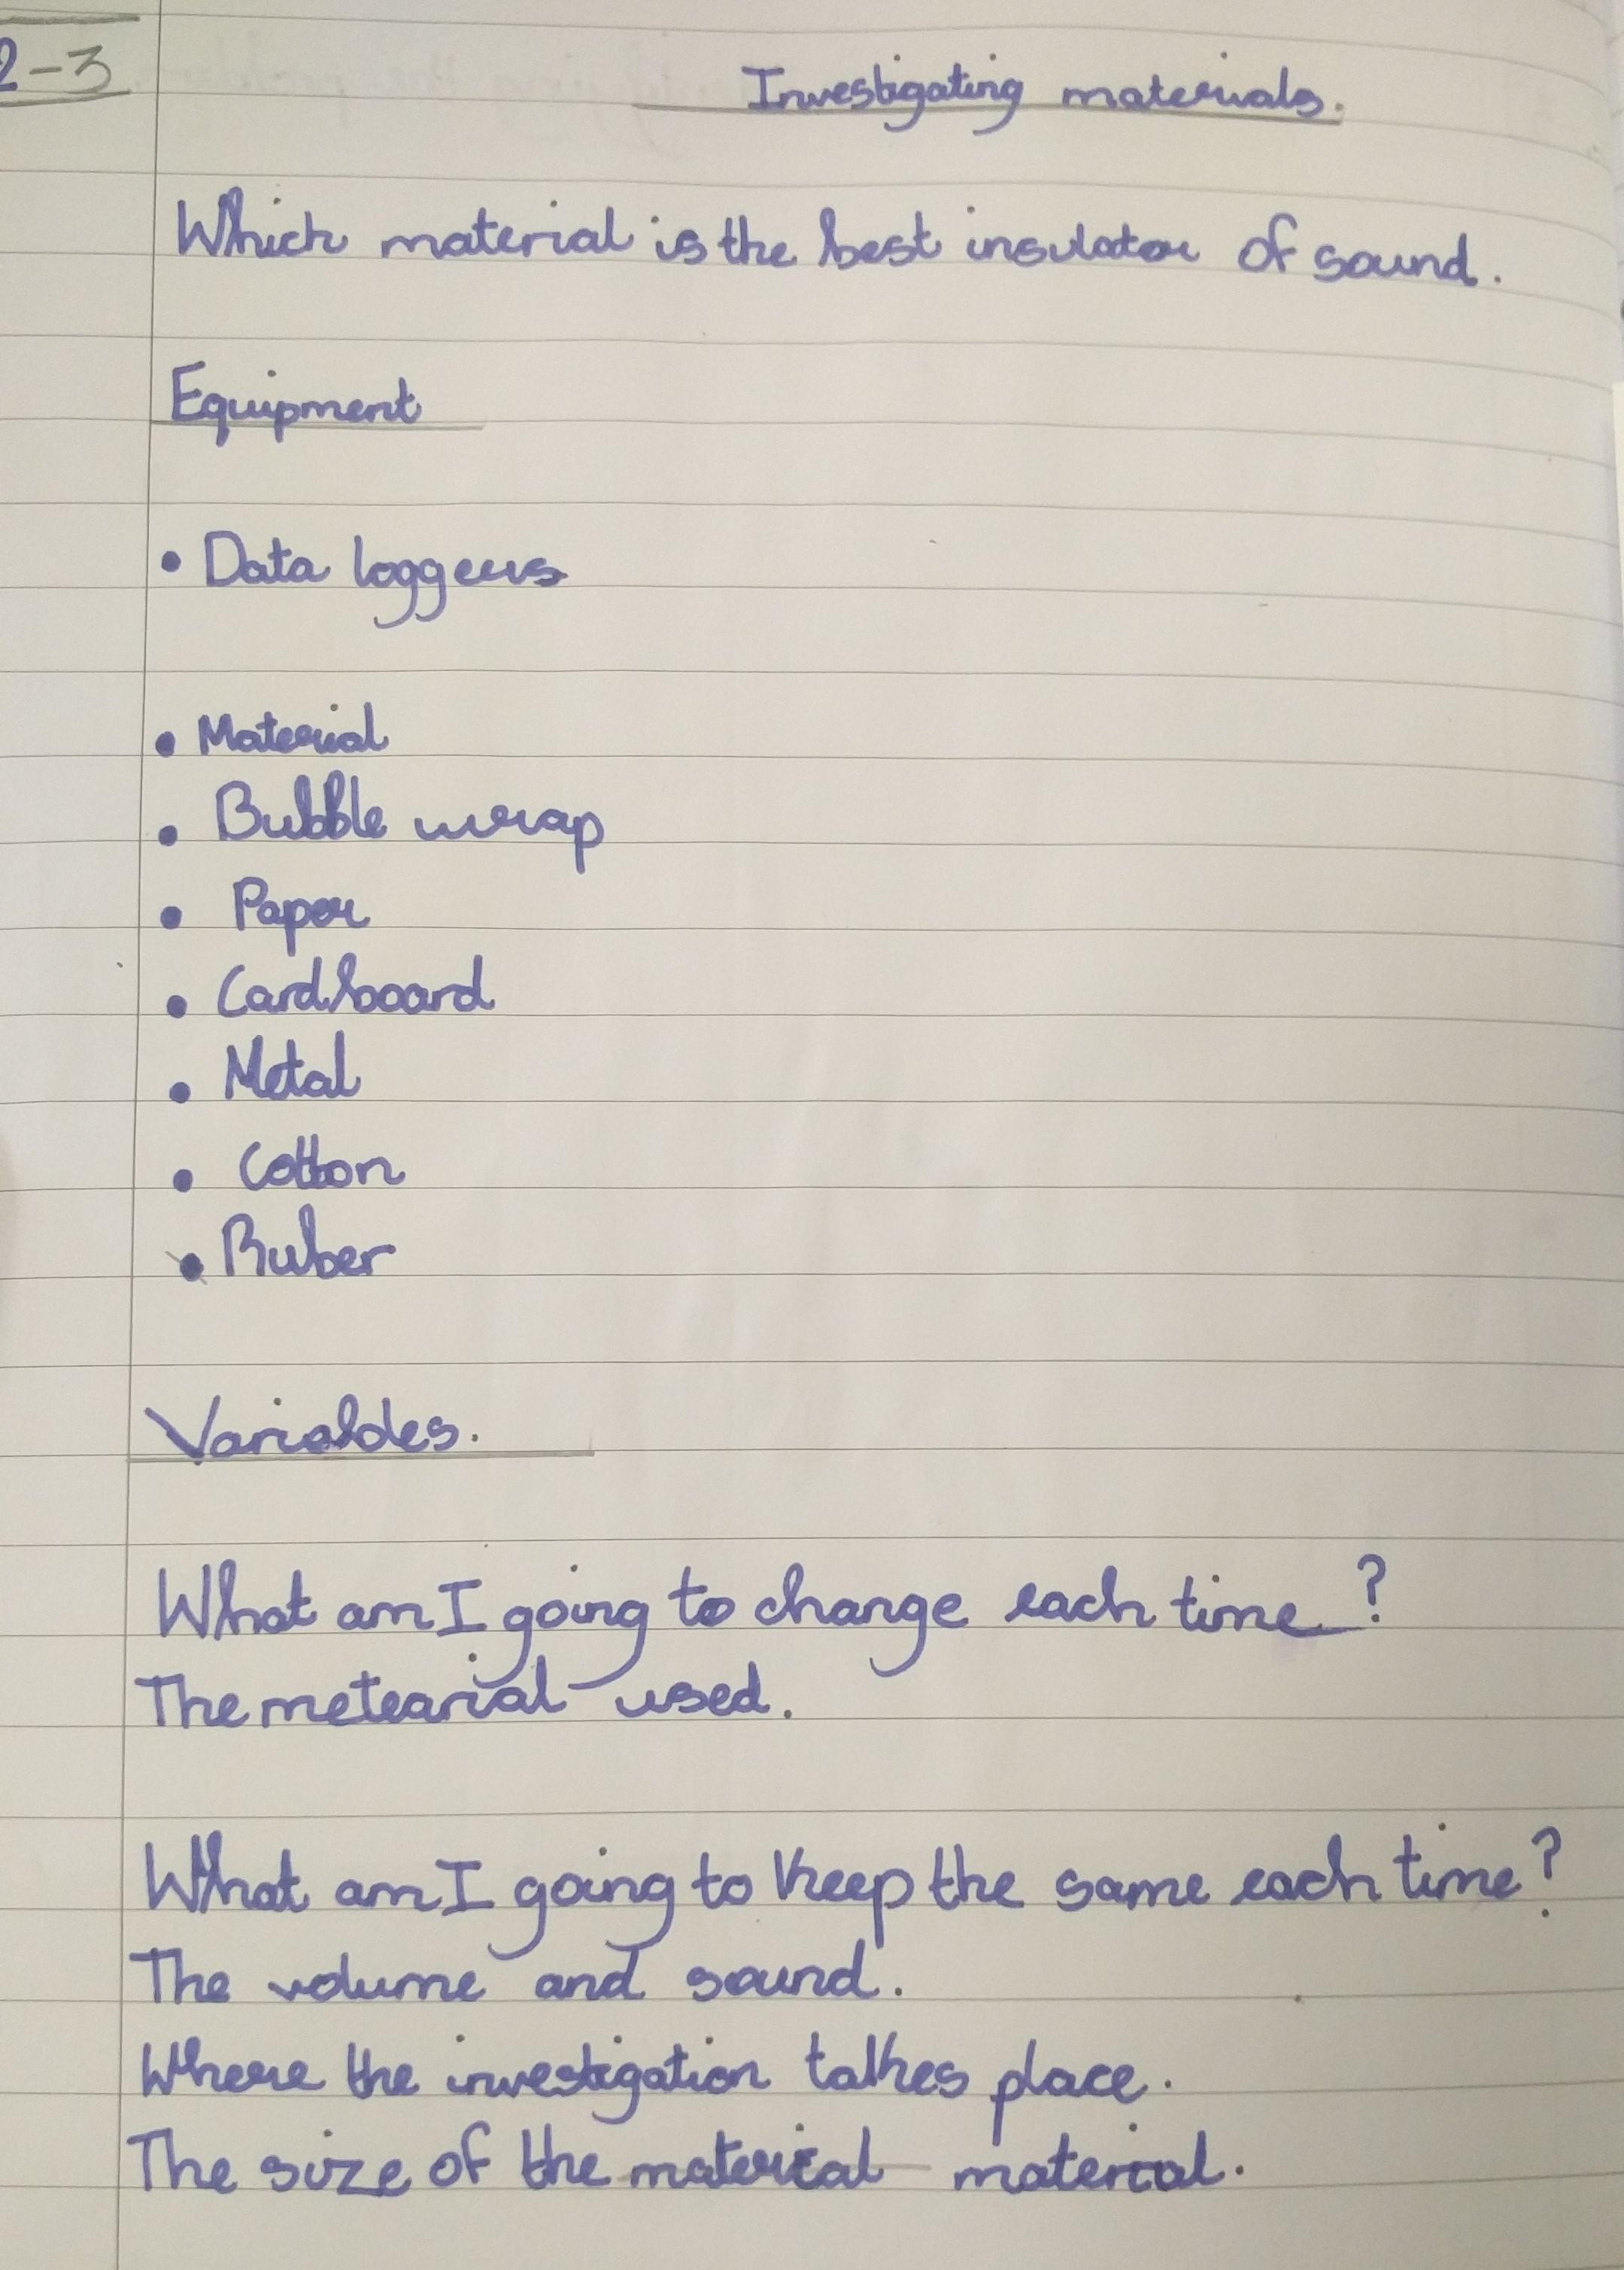 2-3
Investigating materials.
Which material is the best insulator of sound.
Equipment
• Data loggers
• Material
• Bubble wrap
• Paper
• Cardboard
• Metal
• Cotton
• Ruber
Variables.
What am I going to change each time?
The metearial used.
What am I going to keep the same each time?
The volume and sound.
Where the investigation takes place.
The size of the material material.